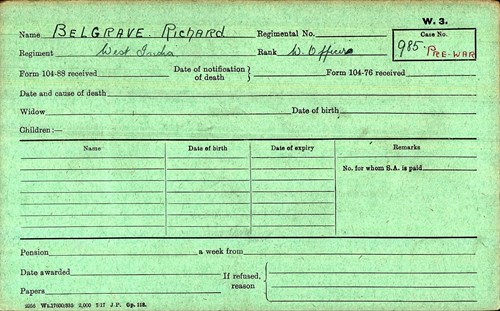 W. 3.
Name BELGRAVE. Richard Regimental No. Case No.
Regiment West India Rank W. Officer 985. PRE-WAR
Form 104-88 received Date of notification of death } Form 104-76 received
Date and cause of death
Widow Date of birth
Children:—
Name Date of birth Date of expiry Remarks
No. for whom S.A. is paid
Pension a week from
Date awarded If refused, reason {
Papers
2,000 7/17 J.P. Gp. 118.